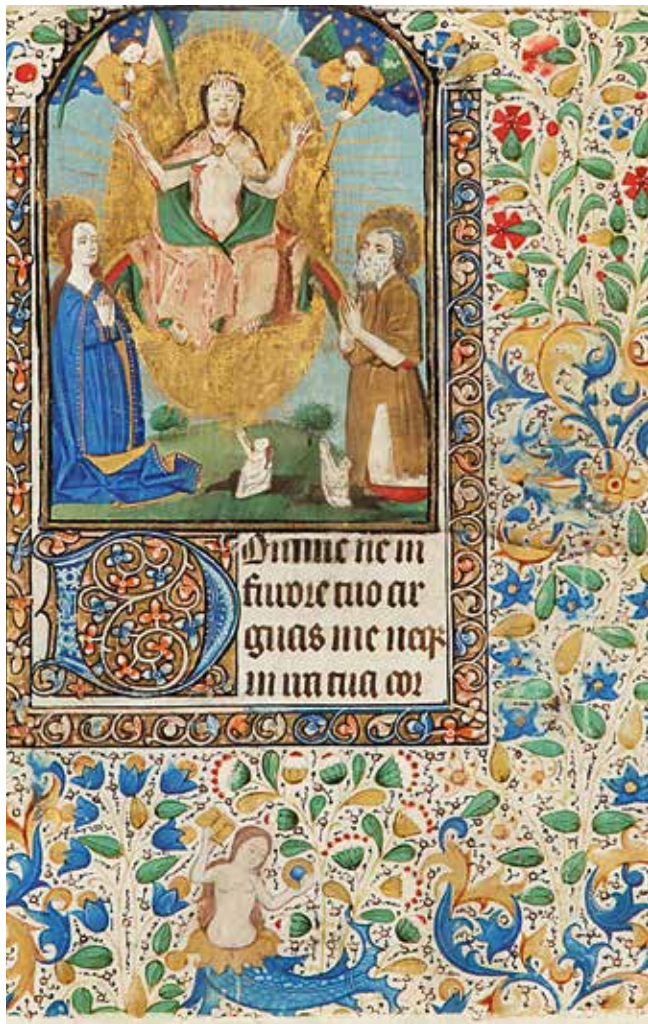 Domine ne in
furore tuo ar
guas me neqꝫ
in ira tua cor